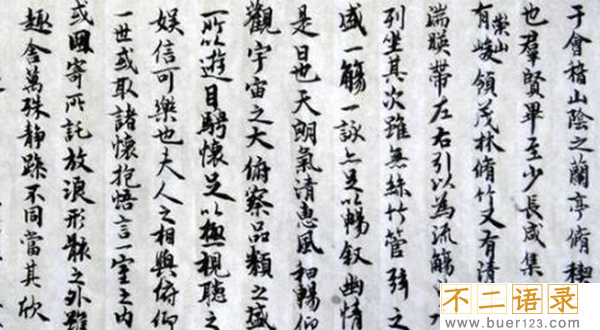 于會稽山陰之蘭亭脩稧
也羣賢畢至少長咸集
有崇山峻領茂林脩竹又有清
湍暎帶左右引以為流觴
列坐其次雖無絲竹管弦之
盛一觴一詠亦足以暢叙幽情
是日也天朗氣清惠風和暢仰
觀宇宙之大俯察品類之盛
所以遊目騁懷足以極視聽之
娛信可樂也夫人之相與俯仰
一世或取諸懷抱悟言一室之內
或因寄所託放浪形骸之外雖
趣舍萬殊静躁不同當其欣
不二语录
www.buer123.com